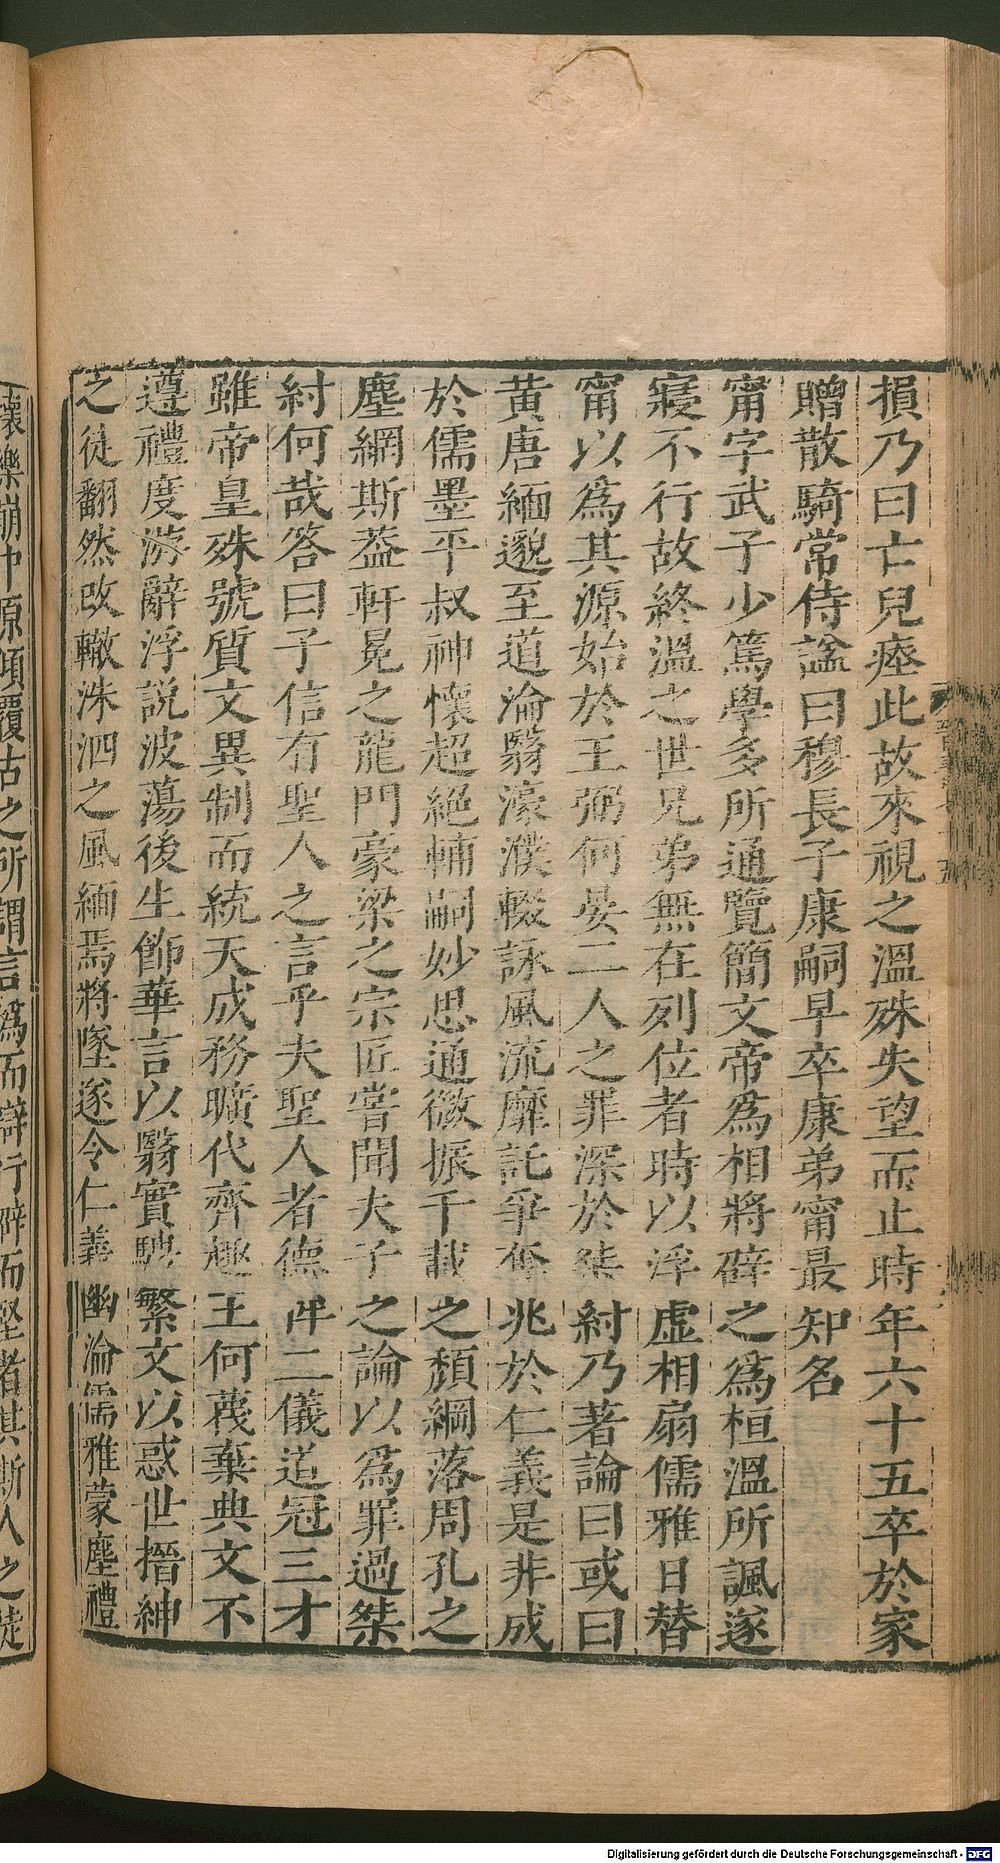 損乃曰亡兒瘞此故來視之溫殊失望而止時年六十五卒於家
贈散騎常侍諡曰穆長子康嗣早卒康弟甯最知名
甯字武子少篤學多所通覽簡文帝爲相將辟之爲桓溫所諷遂
寢不行故終溫之世兄弟無在列位者時以浮虛相扇儒雅日替
甯以爲其源始於王弼何晏二人之罪深於桀紂乃著論曰或曰
黃唐緬邈至道淪翳濠濮輟詠風流靡託爭奪兆於仁義是非成
於儒墨平叔神懷超絕輔嗣妙思通微振千載之頹綱落周孔之
塵網斯蓋軒冕之龍門豪梁之宗匠嘗聞夫子之論以爲罪過桀
紂何哉答曰子信有聖人之言乎夫聖人者德侔二儀道冠三才
雖帝皇殊號質文異制而統天成務曠代齊趣王何蔑棄典文不
遵禮度游辭浮說波蕩後生飾華言以翳實騁繁文以惑世搢紳
之徒翻然改轍洙泗之風緬焉將墜遂令仁義幽淪儒雅蒙塵禮
壞樂崩中原傾覆古之所謂言僞而辯行僻而堅者其斯人之徒
Digitalisierung gefördert durch die Deutsche Forschungsgemeinschaft - DFG